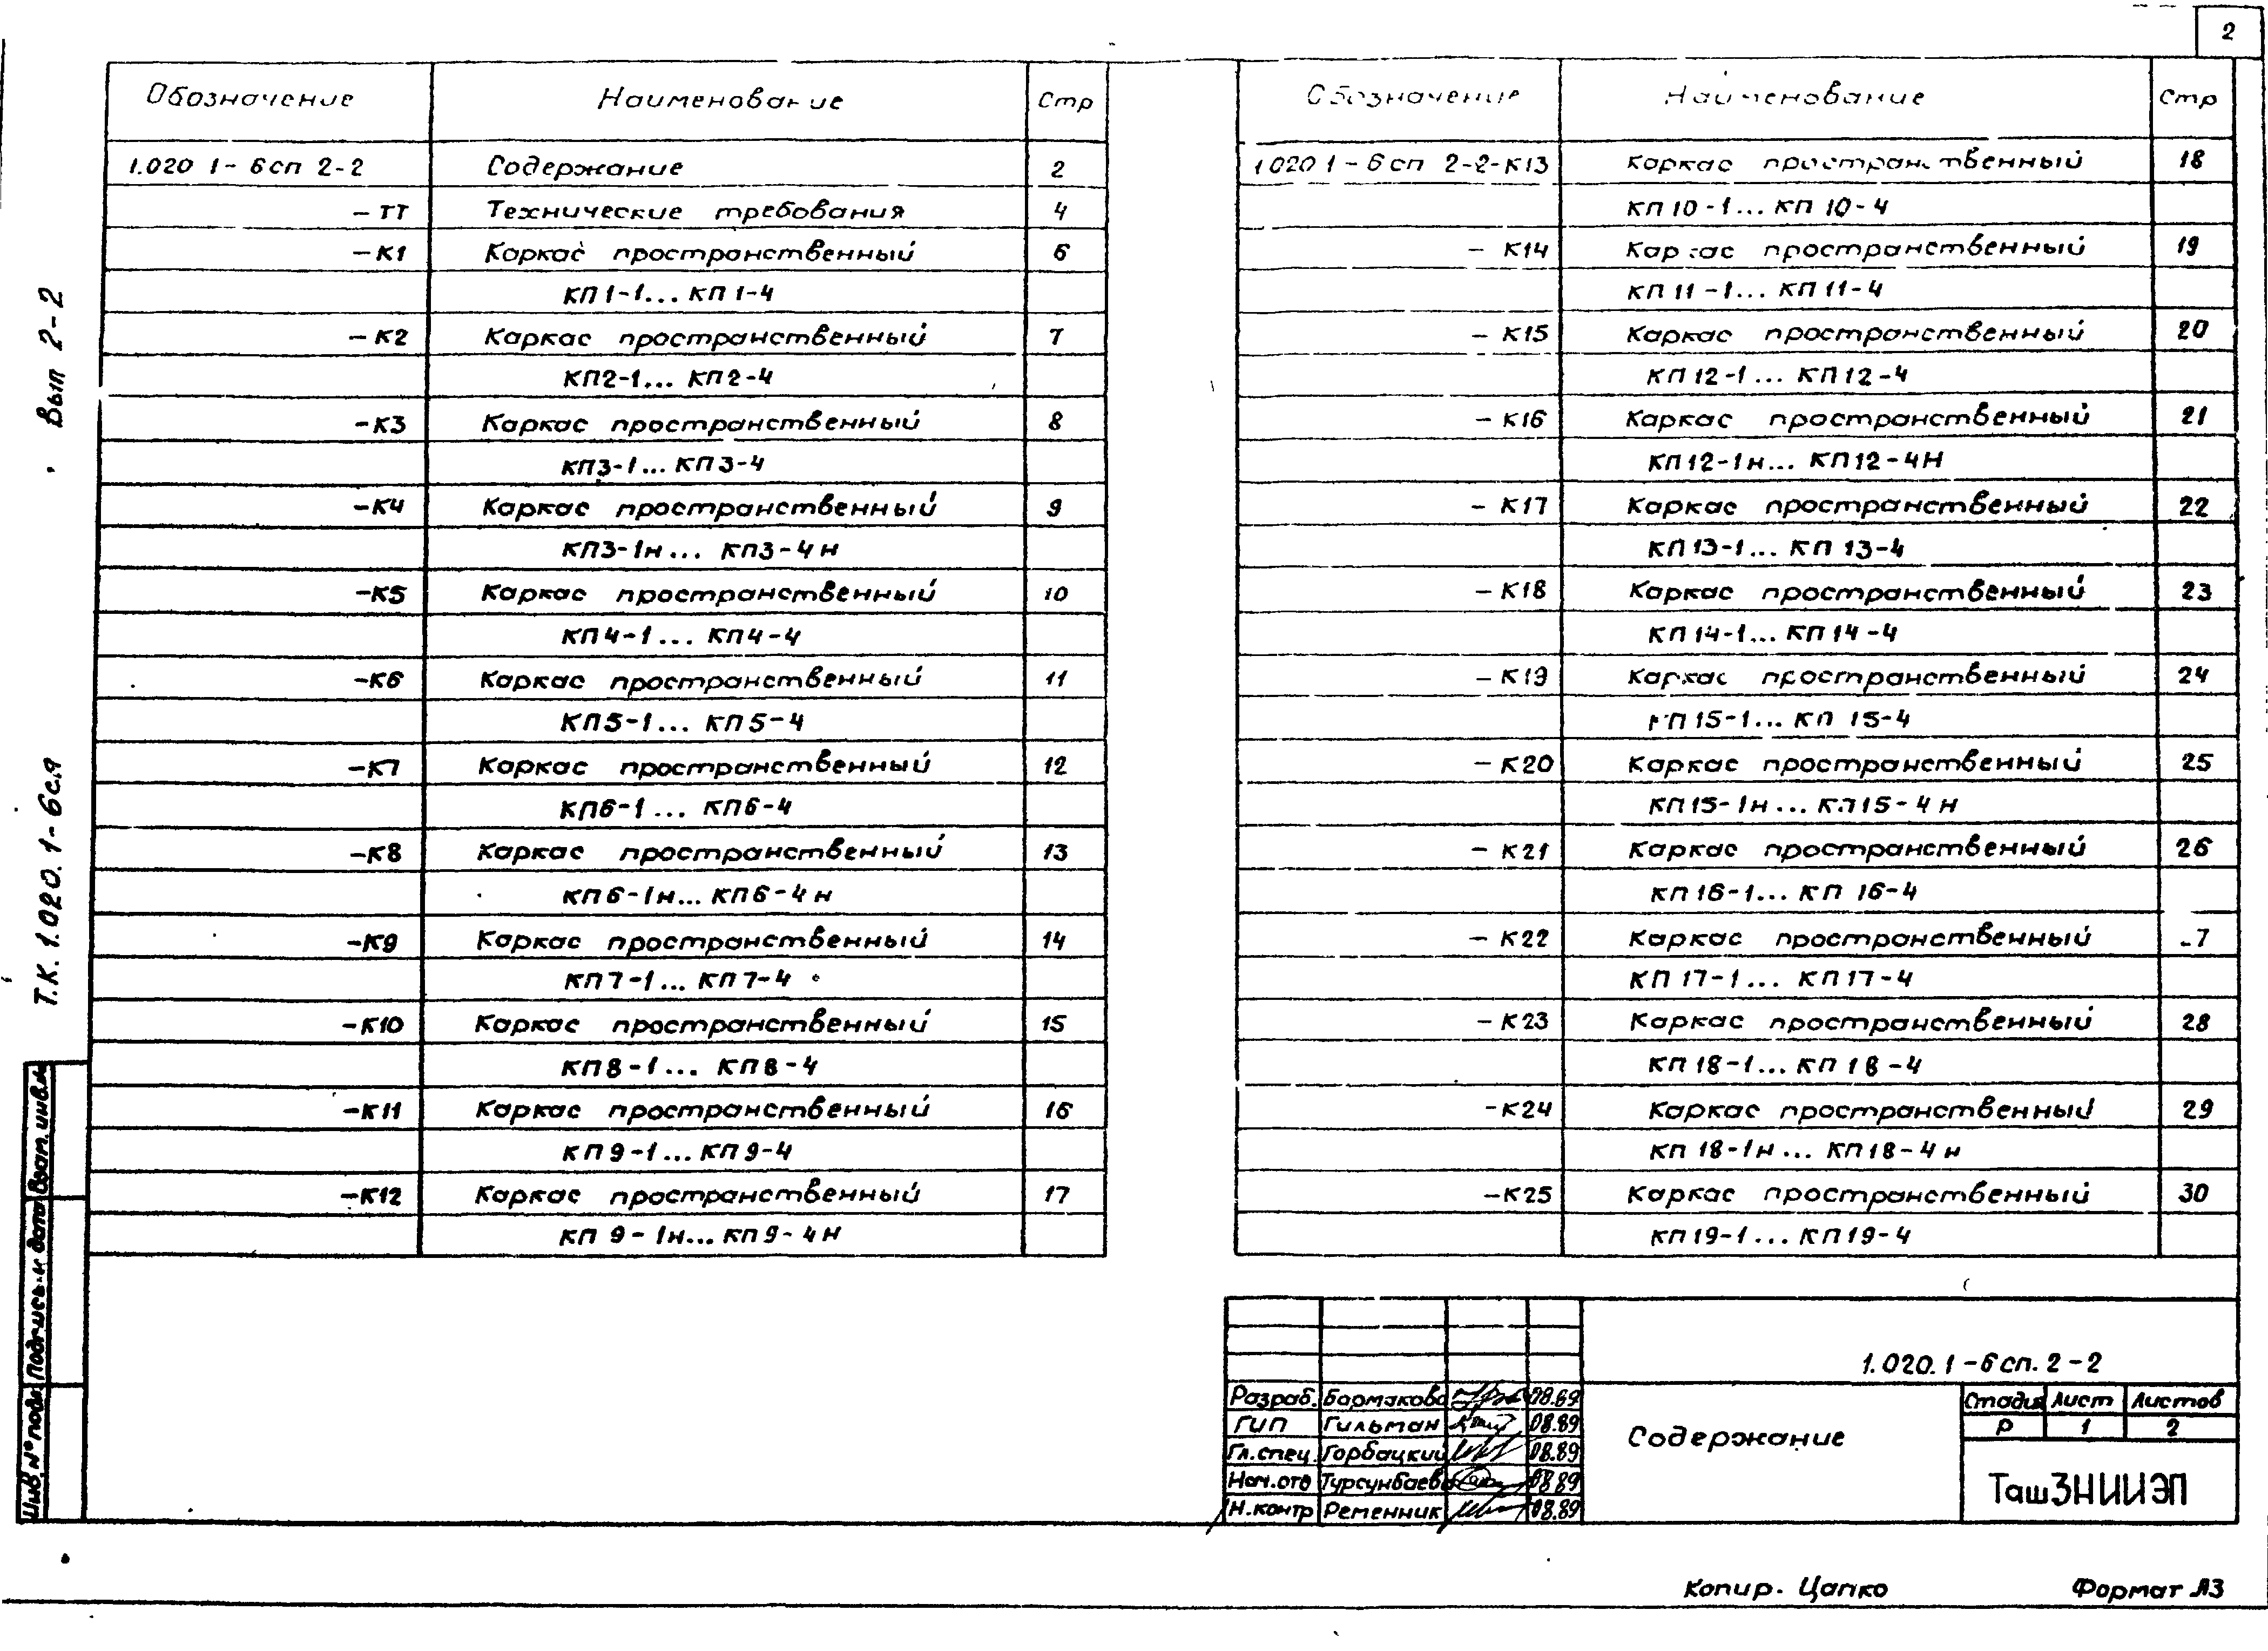 2
Обозначение Наименование Стр
1.020 1-6сп 2-2 Содержание 2
-ТТ Технические требования 4
-К1 Каркас пространственный 6
КП1-1... КП1-4
-К2 Каркас пространственный 7
КП2-1... КП2-4
-К3 Каркас пространственный 8
КП3-1... КП3-4
-К4 Каркас пространственный 9
КП3-1н... КП3-4н
-К5 Каркас пространственный 10
КП4-1... КП4-4
-К6 Каркас пространственный 11
КП5-1... КП5-4
-К7 Каркас пространственный 12
КП6-1... КП6-4
-К8 Каркас пространственный 13
КП6-1н... КП6-4н
-К9 Каркас пространственный 14
КП7-1... КП7-4
-К10 Каркас пространственный 15
КП8-1... КП8-4
-К11 Каркас пространственный 16
КП9-1... КП9-4
-К12 Каркас пространственный 17
КП 9-1н... КП9-4н
Обозначение Наименование Стр
1.020 1-6сп 2-2-К13 Каркас пространственный 18
КП10-1... КП10-4
-К14 Каркас пространственный 19
КП11-1... КП11-4
-К15 Каркас пространственный 20
КП12-1... КП12-4
-К16 Каркас пространственный 21
КП12-1н... КП12-4Н
-К17 Каркас пространственный 22
КП13-1... КП13-4
-К18 Каркас пространственный 23
КП14-1... КП14-4
-К19 Каркас пространственный 24
КП15-1... КП 15-4
-К20 Каркас пространственный 25
КП15-1н... КП15-4н
-К21 Каркас пространственный 26
КП16-1... КП 16-4
-К22 Каркас пространственный 7
КП 17-1... КП17-4
-К23 Каркас пространственный 28
КП18-1... КП18-4
-К24 Каркас пространственный 29
КП 18-1н... КП18-4н
-К25 Каркас пространственный 30
КП19-1... КП19-4
Т.К. 1.020.1-6с.9 Вып 2-2
Инв.№ подл. Подпись и дата Взам.инв.№
1.020.1-6сп.2-2
Разраб. Бармакова 08.89
ГИП Гильман 08.89
Гл.спец. Горбацкий 08.89
Нач.отд Турсунбаева 08.89
Н.контр Ременник 08.89
Содержание
Стадия Лист Листов
Р 1 2
ТашЗНИИЭП
Копир. Цапко Формат А3